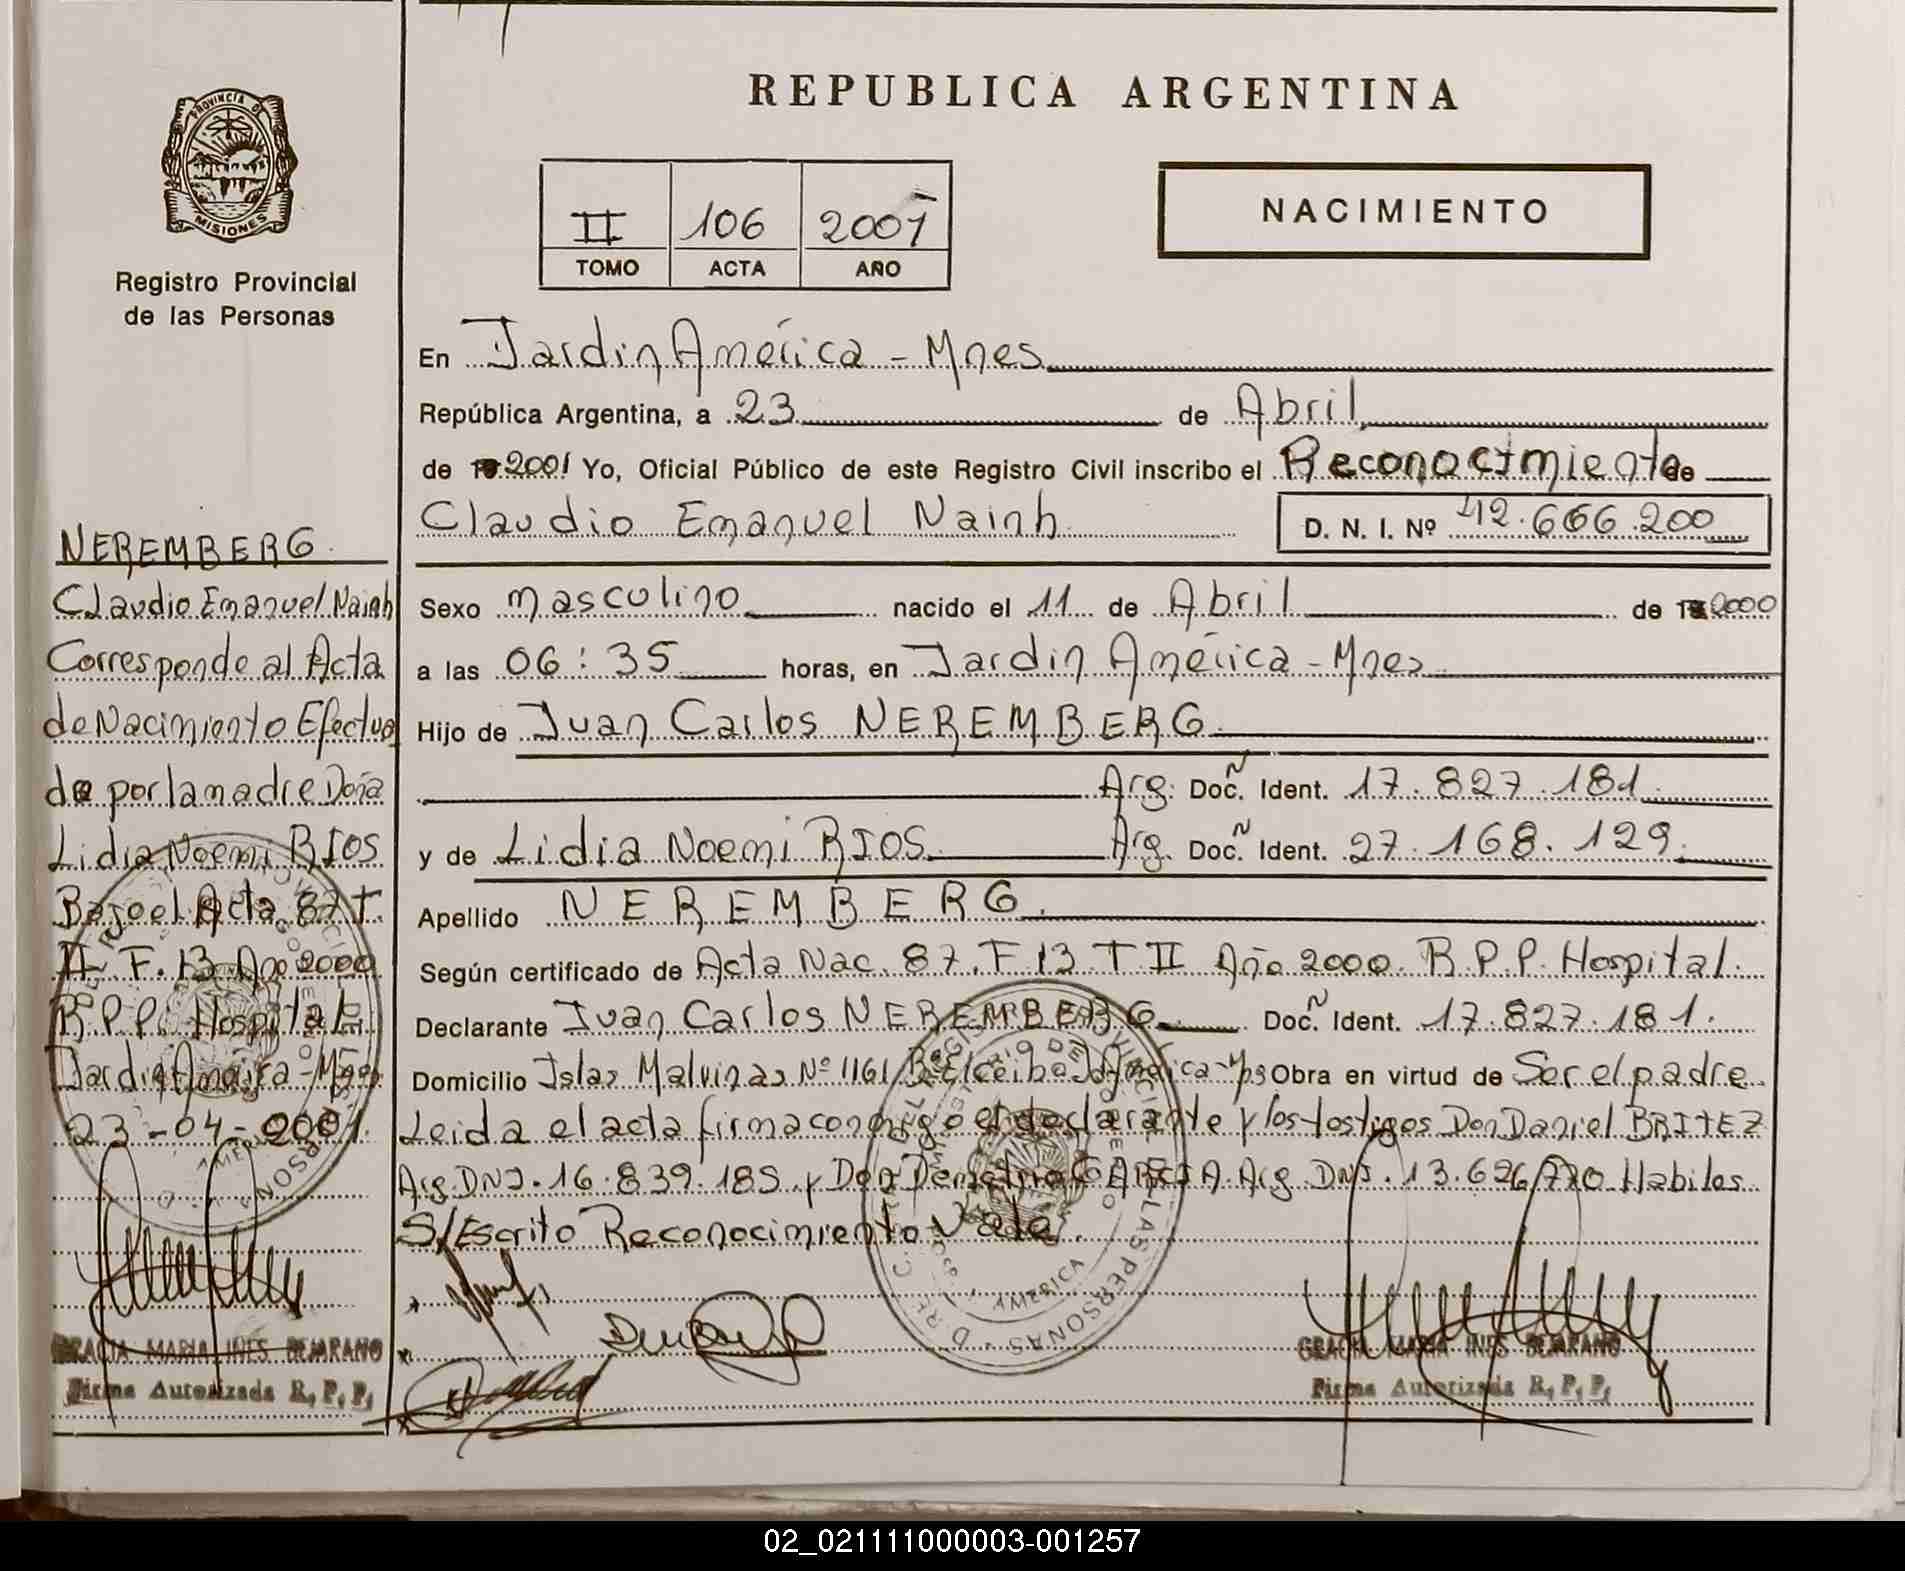 REPUBLICA ARGENTINA
PROVINCIA DE
MISIONES
Registro Provincial
de las Personas
II 106 2001
TOMO ACTA AÑO
NACIMIENTO
En Jardin América - Mnes
República Argentina, a 23 de Abril
de 2001 Yo, Oficial Público de este Registro Civil inscribo el Reconocimiento de
Claudio Emanuel Nainh D. N. I. Nº 42.666.200
Sexo masculino nacido el 11 de Abril de 2000
a las 06:35 horas, en Jardin América - Mnes
Hijo de Juan Carlos NEREMBERG
Arg. Docñ. Ident. 17.827.181
y de Lidia Noemi RIOS Arg. Docñ. Ident. 27.168.129
Apellido NEREMBERG
Según certificado de Acta Nac. 87. F 13 T II Año 2000. R.P.P. Hospital.
Declarante Juan Carlos NEREMBERG Docñ. Ident. 17.827.181.
Domicilio Islas Malvinas Nº 1161 Bº El ceibo J. América - Mns Obra en virtud de Ser el padre
Leida el acta firma conmigo el declarante y los testigos Don Daniel BRITEZ
Arg. DNI. 16.839.185 y Don GARCIA Arg. DNI. 13.626.770 Habiles
S/Escrito Reconocimiento Vale.
GRACIA MARIA INES BEJARANO
Firma Autorizada R. P. P.
NEREMBERG
Claudio Emanuel Nainh
Corresponde al Acta
de Nacimiento Efectua
da por la madre Doña
Lidia Noemi RIOS
Bajo el Acta 87 T.
II F. 13 Año 2000
R.P.P. Hospital
Jardin América - Mnes
23-04-2001.
GRACIA MARIA INES BEJARANO
Firma Autorizada R. P. P.
02_021111000003-001257